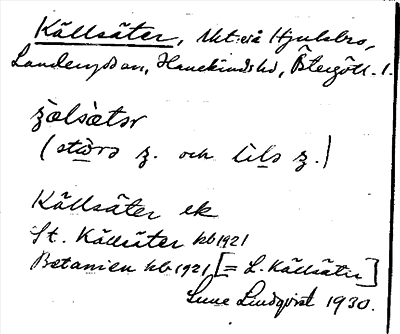 Källsäter, Utskt vid Hjulsbro,
Landeryds sn, Hanekinds hd, Östergötl. l.
ʒæ̀lsætər
(stò̱rə ʒ. och lìlə ʒ.)
Källsäter ek
St. Källsäter kb 1921
Betanien kb. 1921 [= L. Källsäter]
Sune Lindqvist 1930.